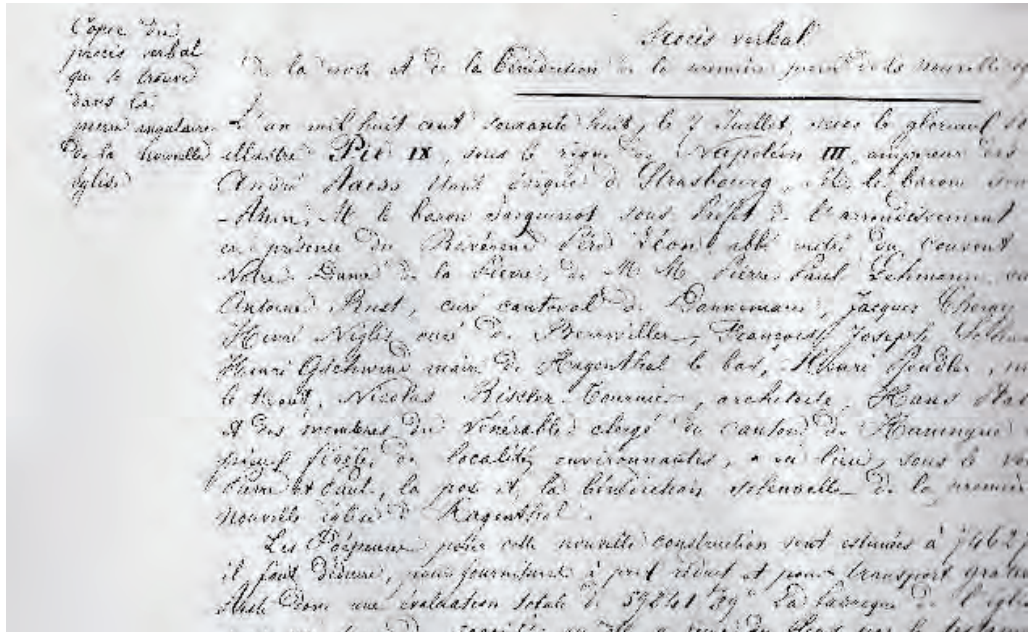 Copie du
procès verbal
qui se trouve
dans la
pierre angulaire
de la nouvelle
église
Procès verbal
de la pose et de la bénédiction de la première pierre de la nouvelle
L'an mil huit cent soixante huit, le 7 Juillet, sous le glorieux
illustre Pie IX, sous le règne de Napoléon III, empereur des
André Raess étant évêque de Strasbourg, M. le baron
M. le baron Jacquinot sous Préfet de l'arrondissement
en présence du Révérend Père Léon, abbé mitré du couvent
Notre Dame de la Pierre, de M M. Pierre Paul Lehmann,
Antoine Rust, curé cantonal de Dannemarie, Jacques
Henri Niglis curé de Bernwiller, François Joseph
Henri Gschwind maire de Hagenthal le bas, Henri
le haut, Nicolas Risler-Tournier, architecte, Hans
et des membres du vénérable clergé du canton de Huningue
pieux fidèles de localités environnantes, a eu lieu, sous le
Pierre et Paul, la pose et la bénédiction solennelle de la première
nouvelle église d'Hagenthal.
Les dépenses pour cette nouvelle construction sont estimées à
il faut déduire, pour fournitures à prix réduit et pour transport
Reste donc une évaluation totale de 59241 89 La fabrique de l'église